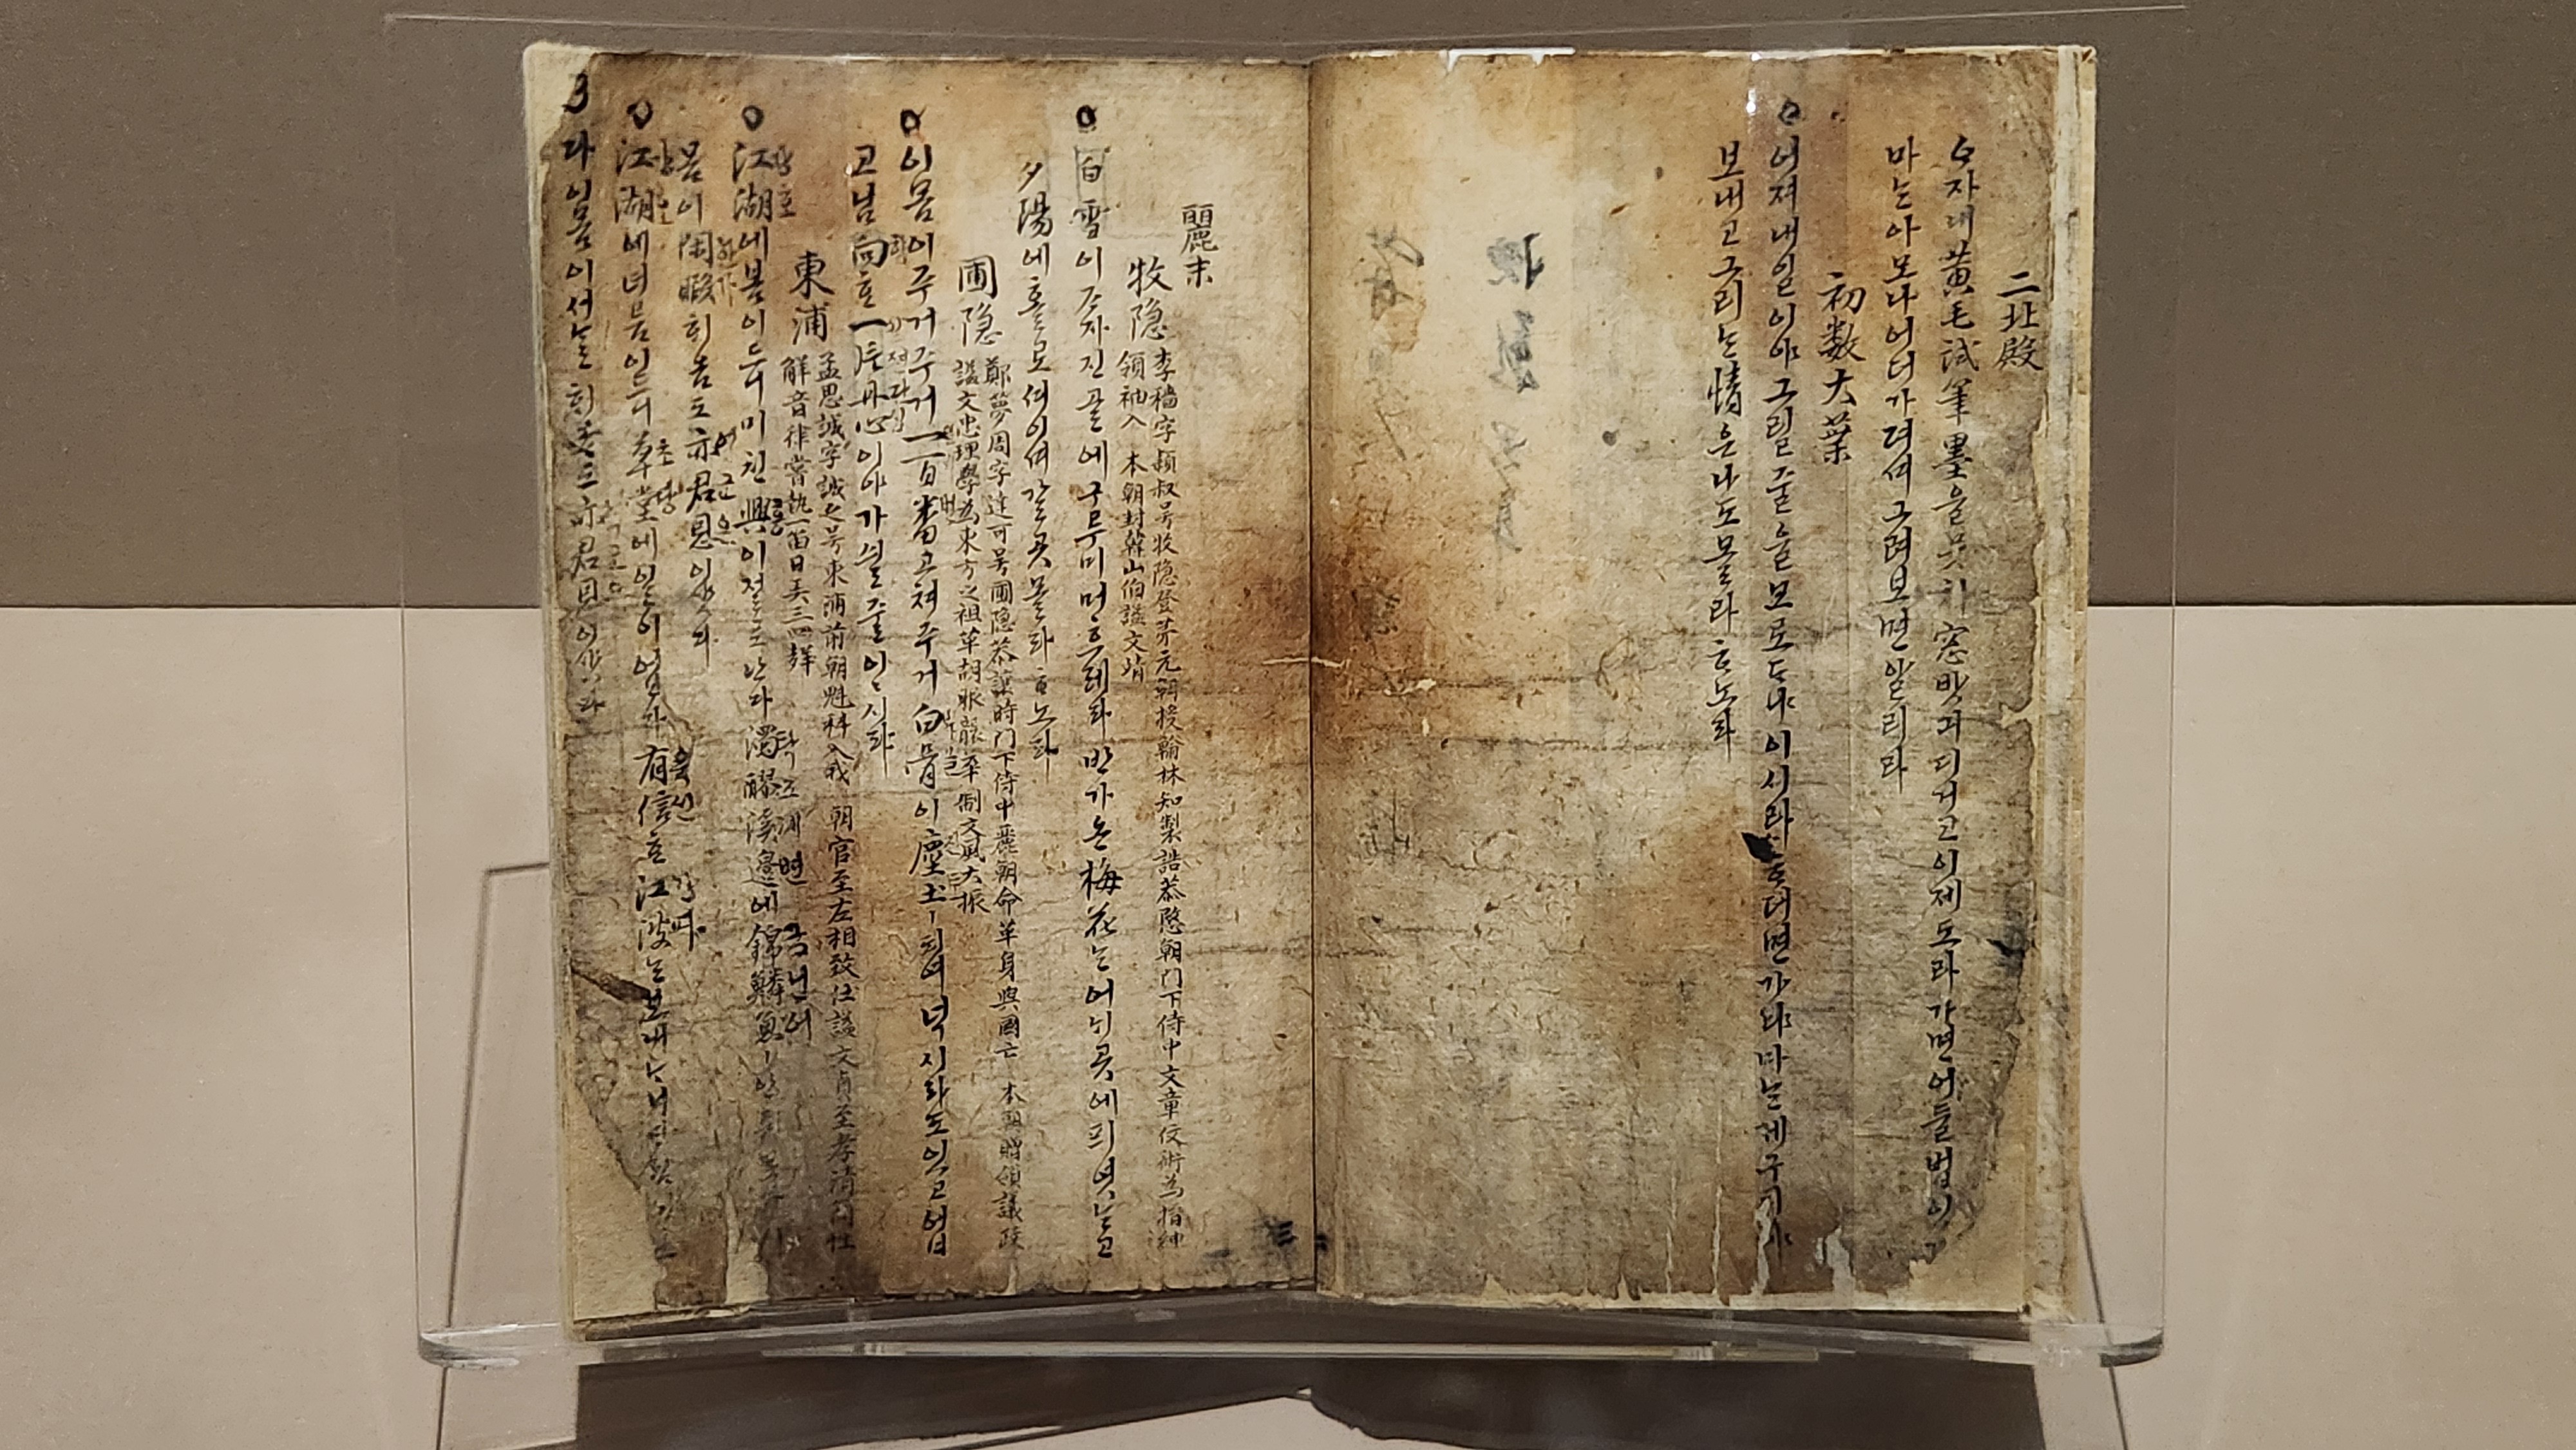 二北殿
空자내黃毛試筆墨을뭇쳐窓밧긔디거고이제도라가면어들법이
마는아모나어더가뎌셔그려보면알리라
初數大葉
어져내일이야그릴줄을모로도냐이시라ᄒᆞ더면가랴마는제구ᄐᆡ야
보내고그리는情은나도몰라ᄒᆞ노라
麗末
牧隱
李穡字頴叔号牧隐登第元朝授翰林知製誥恭愍朝門下侍中文章仅術為搢紳
領袖入 本朝封韓山伯謚文靖
白雪이ᄌᆞ자진골에구루미머흐레라반가온梅花는어ᄂᆡ곳에피엿ᄂᆞᆫ고
夕陽에홀로셔이셔갈곳몰라ᄒᆞ노라
圃隐
鄭夢周字達可号圃隐恭讓時門下侍中麗朝命革身與國亡 本朝贈領議政
謚文忠理學為東方之祖革胡服䕶華制文風大振
이몸이주거주거一百番고쳐주거白骨이塵土ㅣ되여넉시라도잇고업
고님向ᄒᆞᆫ一片丹心이야가싈줄이이시랴
東浦
孟思誠字誠之号東浦前朝魁科入我 朝官至左相致仕謚文貞至孝清簡性
解音律嘗執笛日弄三四聲
江湖에봄이드니미친興이절로난다濁醪溪邊에錦鱗魚ㅣ안ᄌᆔ로다이
몸이閑暇ᄒᆡ옴도亦君恩이샷다
江湖에녀름이드니草堂에일이업다有信ᄒᆞᆫ江波는보내ᄂᆞ니ᄇᆞ람
다이몸이서ᄂᆞᆯᄒᆡ옴도亦君恩이샷다